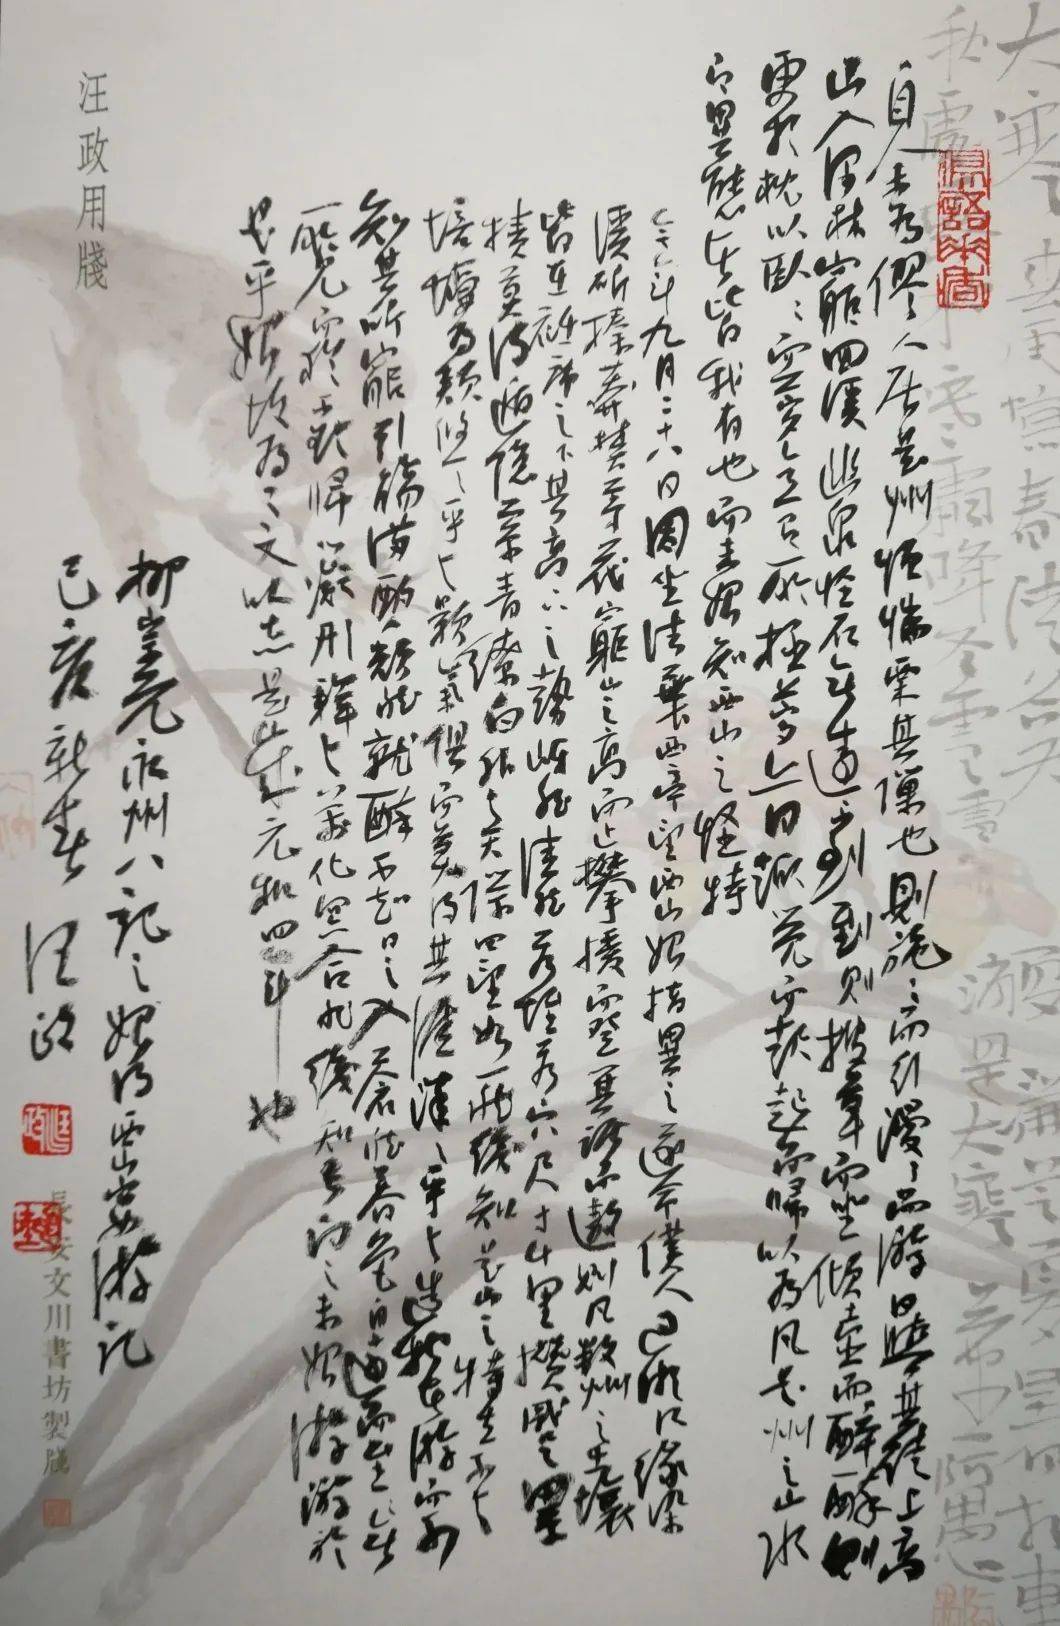 自余為僇人居是州恒惴栗其隟也則施〻而行漫〻而游日與其徒上高
山入深林窮回溪幽泉怪石無遠不到到則披草而坐傾壺而醉醉則
更相枕以臥〻而夢意有所極夢亦同趣覺而起起而歸以為凡是州之山水
有異態者皆我有也而未始知西山之怪特
今年九月二十八日因坐法華西亭望西山始指異之遂命僕人過湘江緣染
溪斫榛莽焚茅茷窮山之高而止攀援而登箕踞而遨則凡數州之土壤
皆在衽席之下其高下之勢岈然洼然若垤若穴尺寸千里攢蹙累
積莫得遁隱縈青繚白外與天際四望如一然後知是山之特立不與
培塿為類悠〻乎與顥氣俱而莫得其涯洋〻乎與造物者游而不
知其所窮引觴滿酌頹然就醉不知日之入蒼然暮色自遠而至〻無
所見而猶不欲歸心凝形釋與萬化冥合然後知吾向之未始游游於
是乎始故為之文以志是歲元和四年也
柳宗元永州八記之始得西山宴游記
己亥新春 汪政
汪政用牋
長安文川書坊製牋